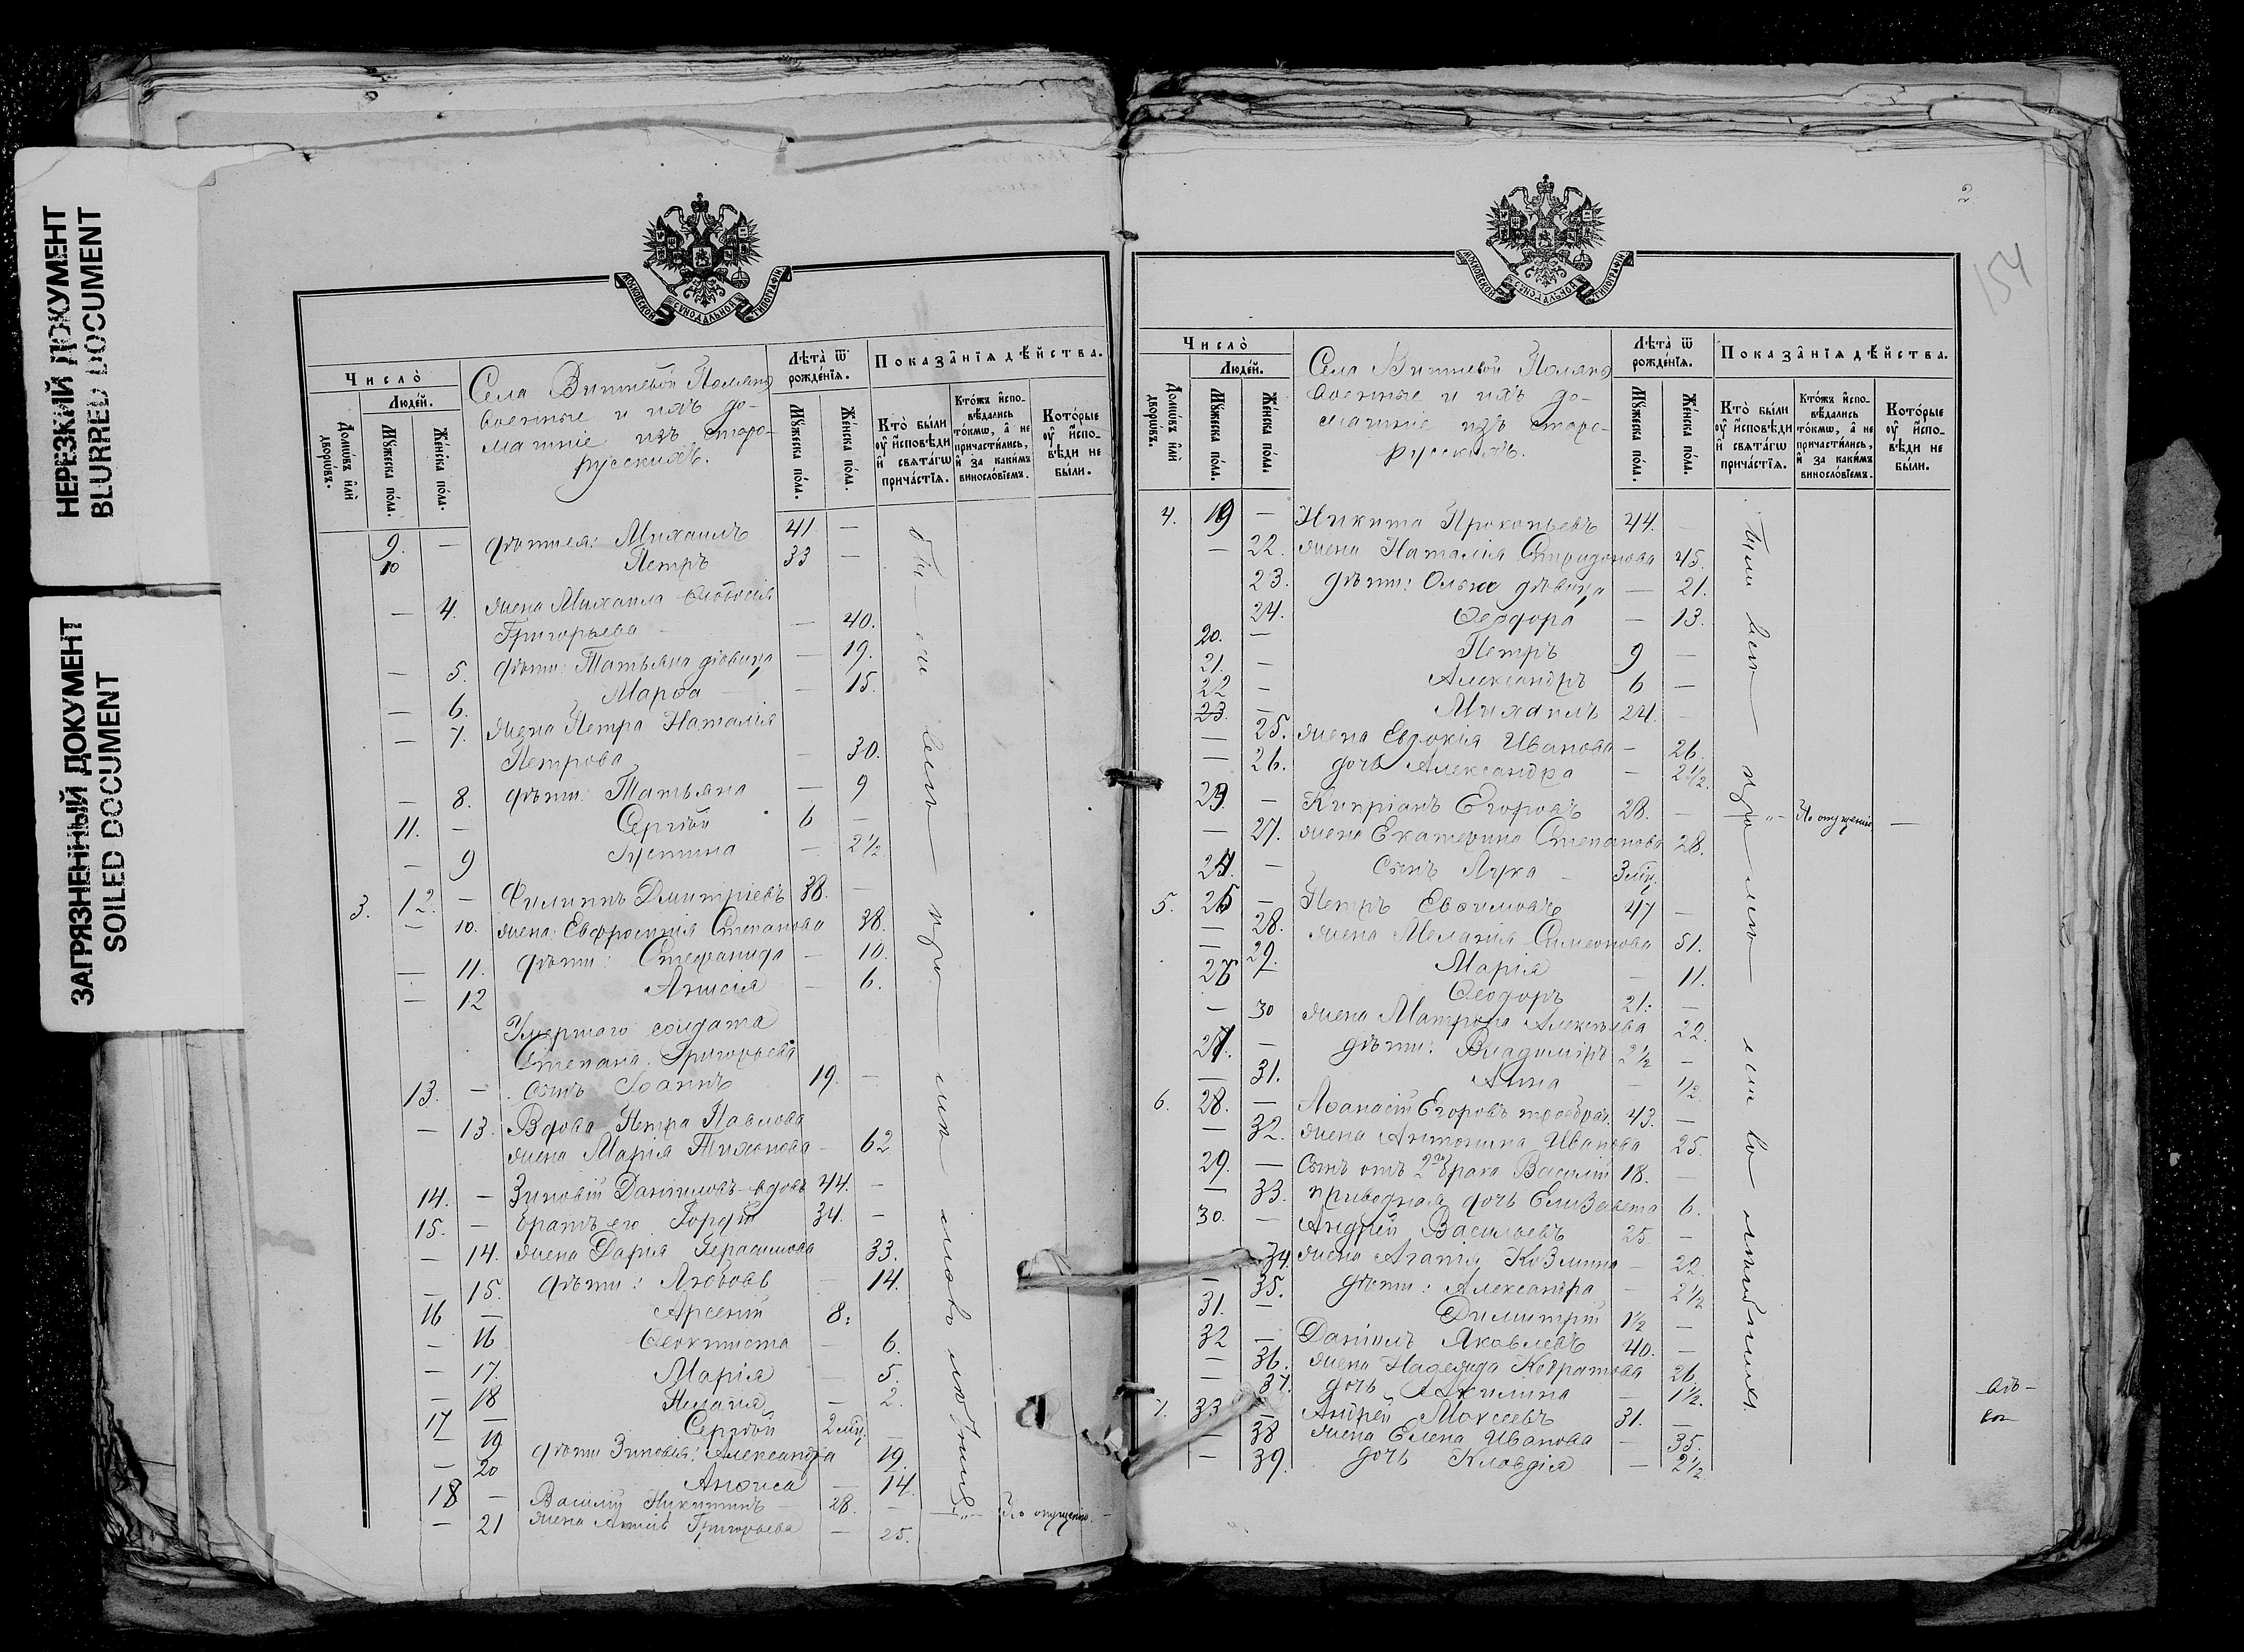 НЕРЕЗКИЙ ДОКУМЕНТ
BLURRED DOCUMENT
ЗАГРЯЗНЕННЫЙ ДОКУМЕНТ
SOILED DOCUMENT
МОСКОВСКОЙ СѴНОДАЛЬНОЙ ТИПОГРАФІИ
Число̀
Людей.
Домѡ́въ и҆лѝ дворѡ́въ.
Мꙋ́жеска по́ла.
Же́нска по́ла.
Села Вишневой Поляны
военные и ихъ до-
машніе изъ старо-
русскихъ.
Лѣта̀ ѿ рожде́нїѧ.
Мꙋ́жеска по́ла.
Же́нска по́ла.
Показа̂нїѧ дѣ́йства.
Кто̀ бы́ли ᲂу҆ и҆́сповѣди и҆ свѧта́гѡ прича́стїѧ.
Кто́жъ и҆спо-вѣ́дались то́кмѡ, а҆ не причасти́лись, и҆ за каки́мъ винosло́вїемъ.
Кото́рые ᲂу҆ и҆спо-вѣди не бы́ли.
9. — дѣти ея: Михаилъ 41 —
10 Петръ 33 —
— 4. жена Михаила Ѳеодосія
Григорьева — 40.
— 5. дѣти: Татьяна дѣвица — 19.
— 6. Марѳа — 15.
— 7. жена Петра Наталія
Петрова — 30.
— 8. дѣти: Татьяна — 9
11. — Сергѣй 6 —
— 9 Іустина — 2½
3. 12. — Филиппъ Дмитріевъ 38. —
— 10. жена Евфросинія Степанова 38.
— 11. дѣти: Стефанида — 10.
— 12 Анисія — 6.
Умершаго солдата
Степана Григорьева
13. — сынъ Іоаннъ 19. —
— 13. Вдова Петра Павлова
жена Марія Тихонова — 62
14. — Зиновій Даніиловъ вдовъ 44. —
15. — братъ его Гордій 34. —
— 14. жена Дарія Герасимова 33.
— 15. дѣти: Любовь — 14.
16 — Арсеній 8.
— 16 Ѳеоктиста — 6.
— 17. Марія — 5.
— 18 Пелагія — 2.
17 — Сергѣй 2 мѣц. —
— 19 дѣти Зиновія: Александра 19.
— 20 Анѳиса — 14.
18 — Василій Никитинъ 28. —
— 21 жена Григорьева — 25. По опущенію. —
2
154
МОСКОВСКОЙ СѴНОДАЛЬНОЙ ТИПОГРАФІИ
Число̀
Людей.
Домѡ́въ и҆лѝ дворѡ́въ.
Мꙋ́жеска по́ла.
Же́нска по́ла.
Села Вишневой Поляны
военные и ихъ до-
машніе изъ старо-
русскихъ.
Лѣта̀ ѿ рожде́нїѧ.
Мꙋ́жеска по́ла.
Же́нска по́ла.
Показа̂нїѧ дѣ́йства.
Кто̀ бы́ли ᲂу҆ и҆́сповѣди и҆ свѧта́гѡ прича́стїѧ.
Кто́жъ и҆спо-вѣ́дались то́кмѡ, а҆ не причасти́лись, и҆ за каки́мъ винosло́вїемъ.
Кото́рые ᲂу҆ и҆спо-вѣди не бы́ли.
4. 19 — Никита Прокопьевъ 44. —
— 22. жена Наталія Спиридонова 45.
23. дѣти: Ольга дѣвица — 21.
24. Ѳеодора — 13.
20. — Петръ 9 —
21. — Александръ 6 —
22 — Михаилъ 24. —
23. — 25. жена Евдокія Иванова — 26.
— 26. дочь Александра — 2½.
23 — Кипріанъ Егоровъ 28. — По опущенію —
— 27. жена Екатерина Степанова 28.
24. — сынъ Лука 3 мѣц.
5. 25 — Петръ Евѳимовъ 47 —
— 28. жена Меланія Симеонова 51.
— 29. Марія — 11.
26 — Ѳеодоръ 21. —
— 30 жена Матрона Алексѣева 22.
27. — дѣти: Владиміръ 2½ —
— 31. Анна — ½
6. 28. — Аѳанасій Егоровъ 43. —
— 32. жена Антонина Иванова 25.
29. — Сынъ отъ 2го брака Василій 18. —
— 33. приводная дочь Елизавета 6.
30. — Андрей Васильевъ 25. —
34. жена Агапія Козмина — 22.
— 35. дѣти: Александра — 2½
31. — Димитрій 1½ —
32 — Даніилъ Яковлевъ 40. —
— 36. жена Надежда Кодратова 26.
— 37. дочь Акилина — 1½.
7. 33 — Андрей Моксеевъ 31. —
— 38 жена Елена Иванова — 35.
— 39. дочь Клавдія — 2½